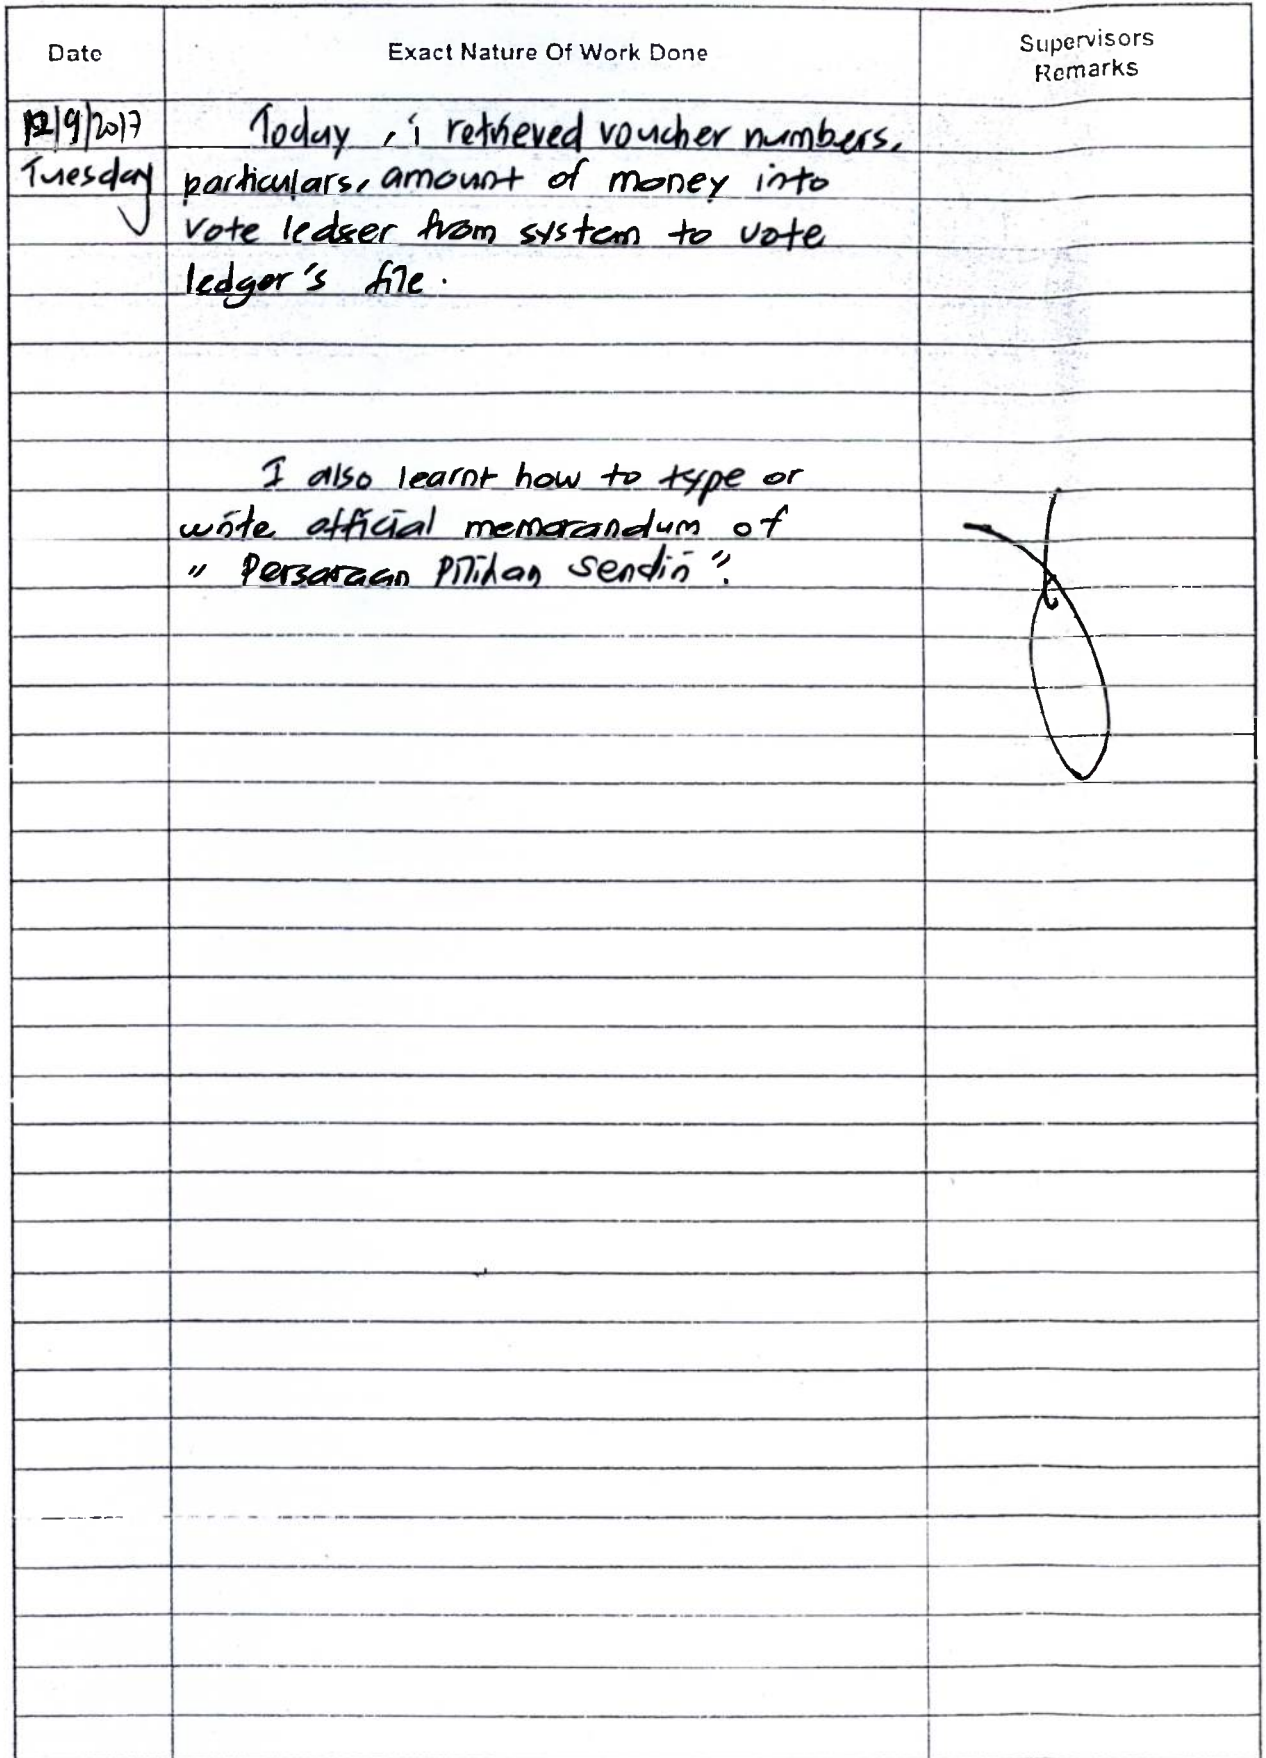 Date
Exact Nature Of Work Done
Supervisors
Remarks
12/9/2017
Tuesday
Today, i retrieved voucher numbers,
particulars, amount of money into
vote ledger from system to vote
ledger's file.
I also learnt how to type or
write official memorandum of
" Persaraan Pilihan Sendiri ".